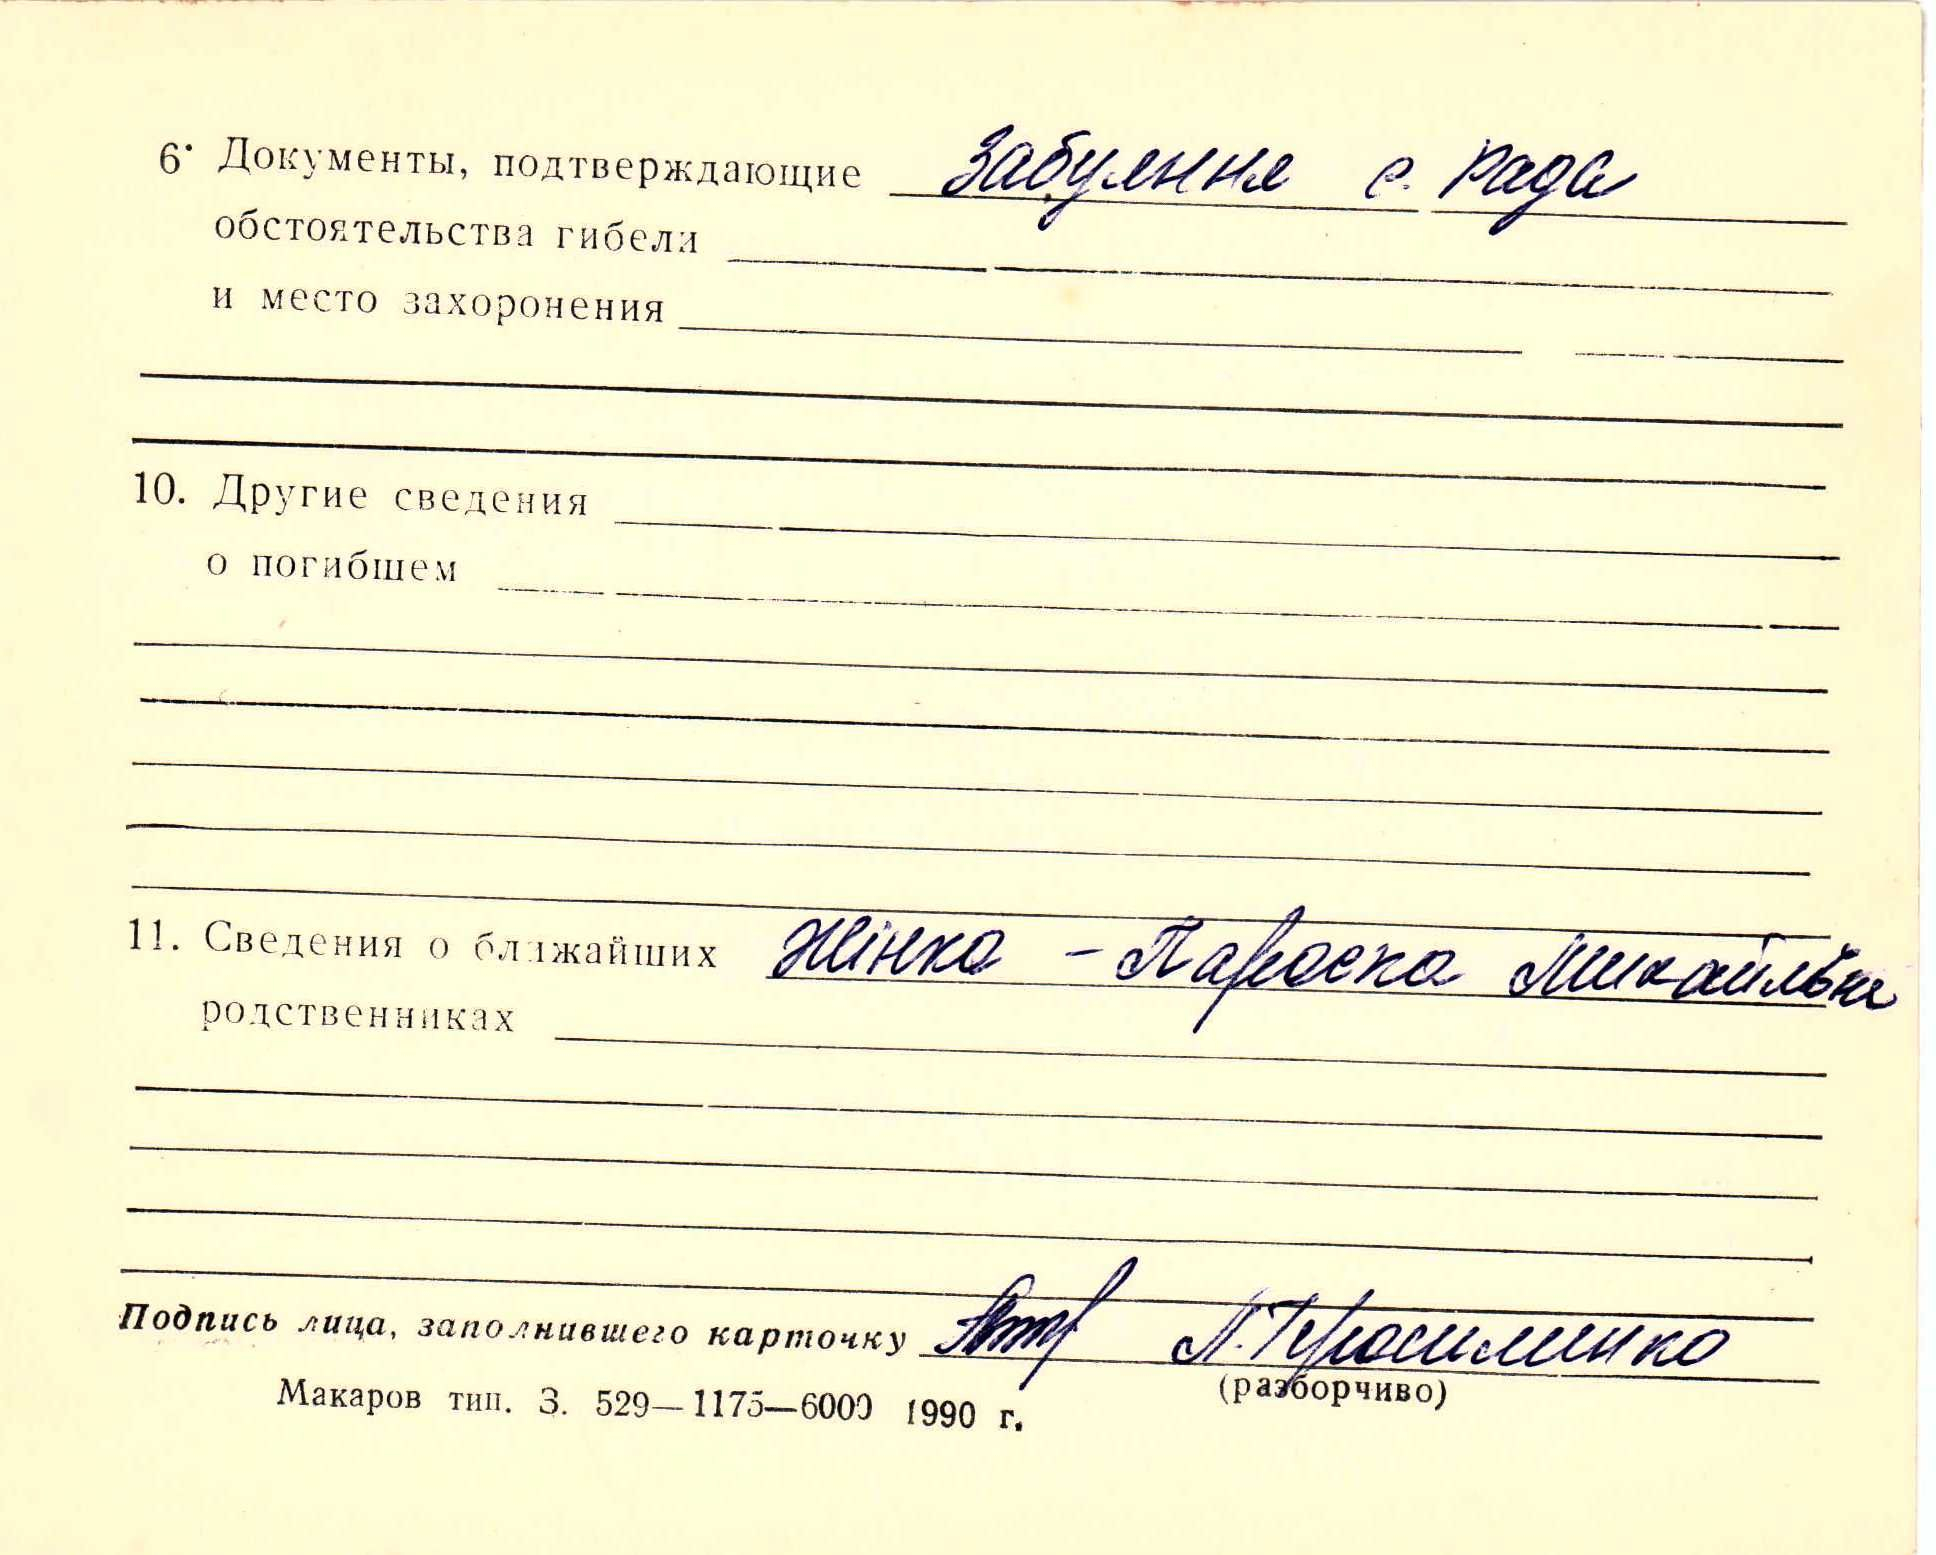 6. Документы, подтверждающие Забуяння с. рада
обстоятельства гибели
и место захоронения
10. Другие сведения
о погибшем
11. Сведения о ближайших Жінка - Параска Михайлівна
родственниках
Подпись лица, заполнившего карточку Л. Герасименко
(разборчиво)
Макаров тип. З. 529—1175—6000 1990 г.